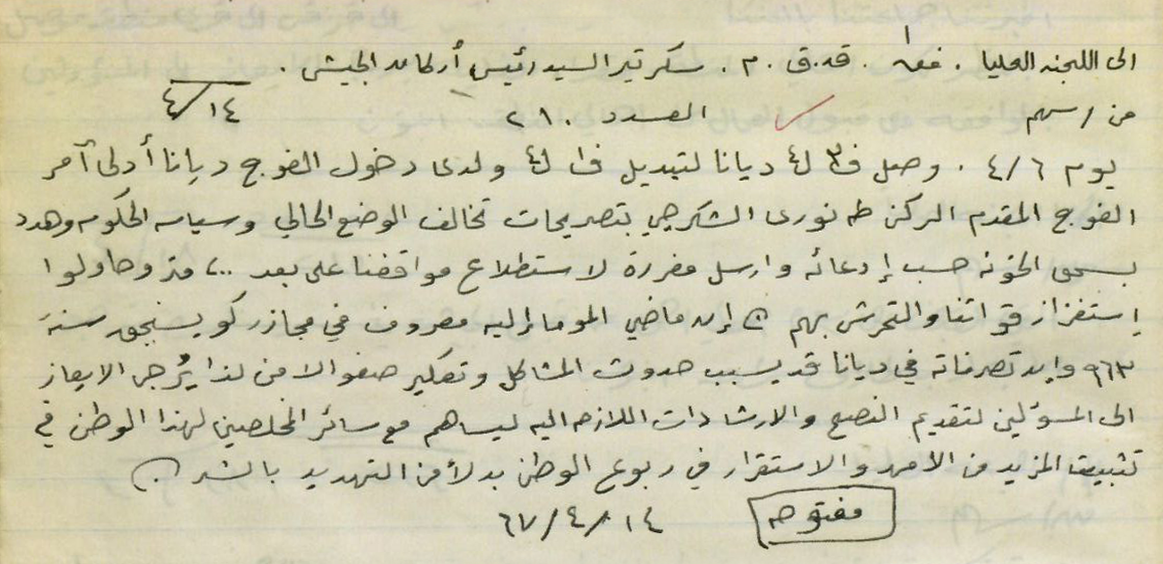 الى اللجنه العليا . فق١ . قد.ق . م . سكرتير السيد رئيس أركان الجيش .
من / سهم العدد ٢٨٠ ١٤/٤
يوم ٤/٦ . وصل ف٣ ل٤ ديانا لتبديل ف١ ل٤ ولدى دخول الفوج ديانا أدلى آمر
الفوج المقدم الركن طه نورى الشكرجي بتصريحات تخالف الوضع الحالي وسياسه الحكومه وهدد
بسحق الخونه حسب إدعائه وارسل مفرزة لاستطلاع مواقفنا على بعد ٢٠٠ متر وحاولوا
إستفزاز قواتنا والتحرش بهم (.) إن ماضي الموما إليه معروف في مجازر كويسنجق سنة
٩٦٣ وان تصرفاته في ديانا قد يسبب حدوث المشاكل وتعكير صفو الامن لذا يُرجى الايعاز
الى المسؤلين لتقديم النصح والارشادات اللازمه اليه ليساهم مع سائر المخلصين لهذا الوطن في
تثبيت المزيد من الامن والاستقرار في ربوع الوطن بدلأ من التهديد بالشر (.)
مفتوحه ٦٧/٤/١٤